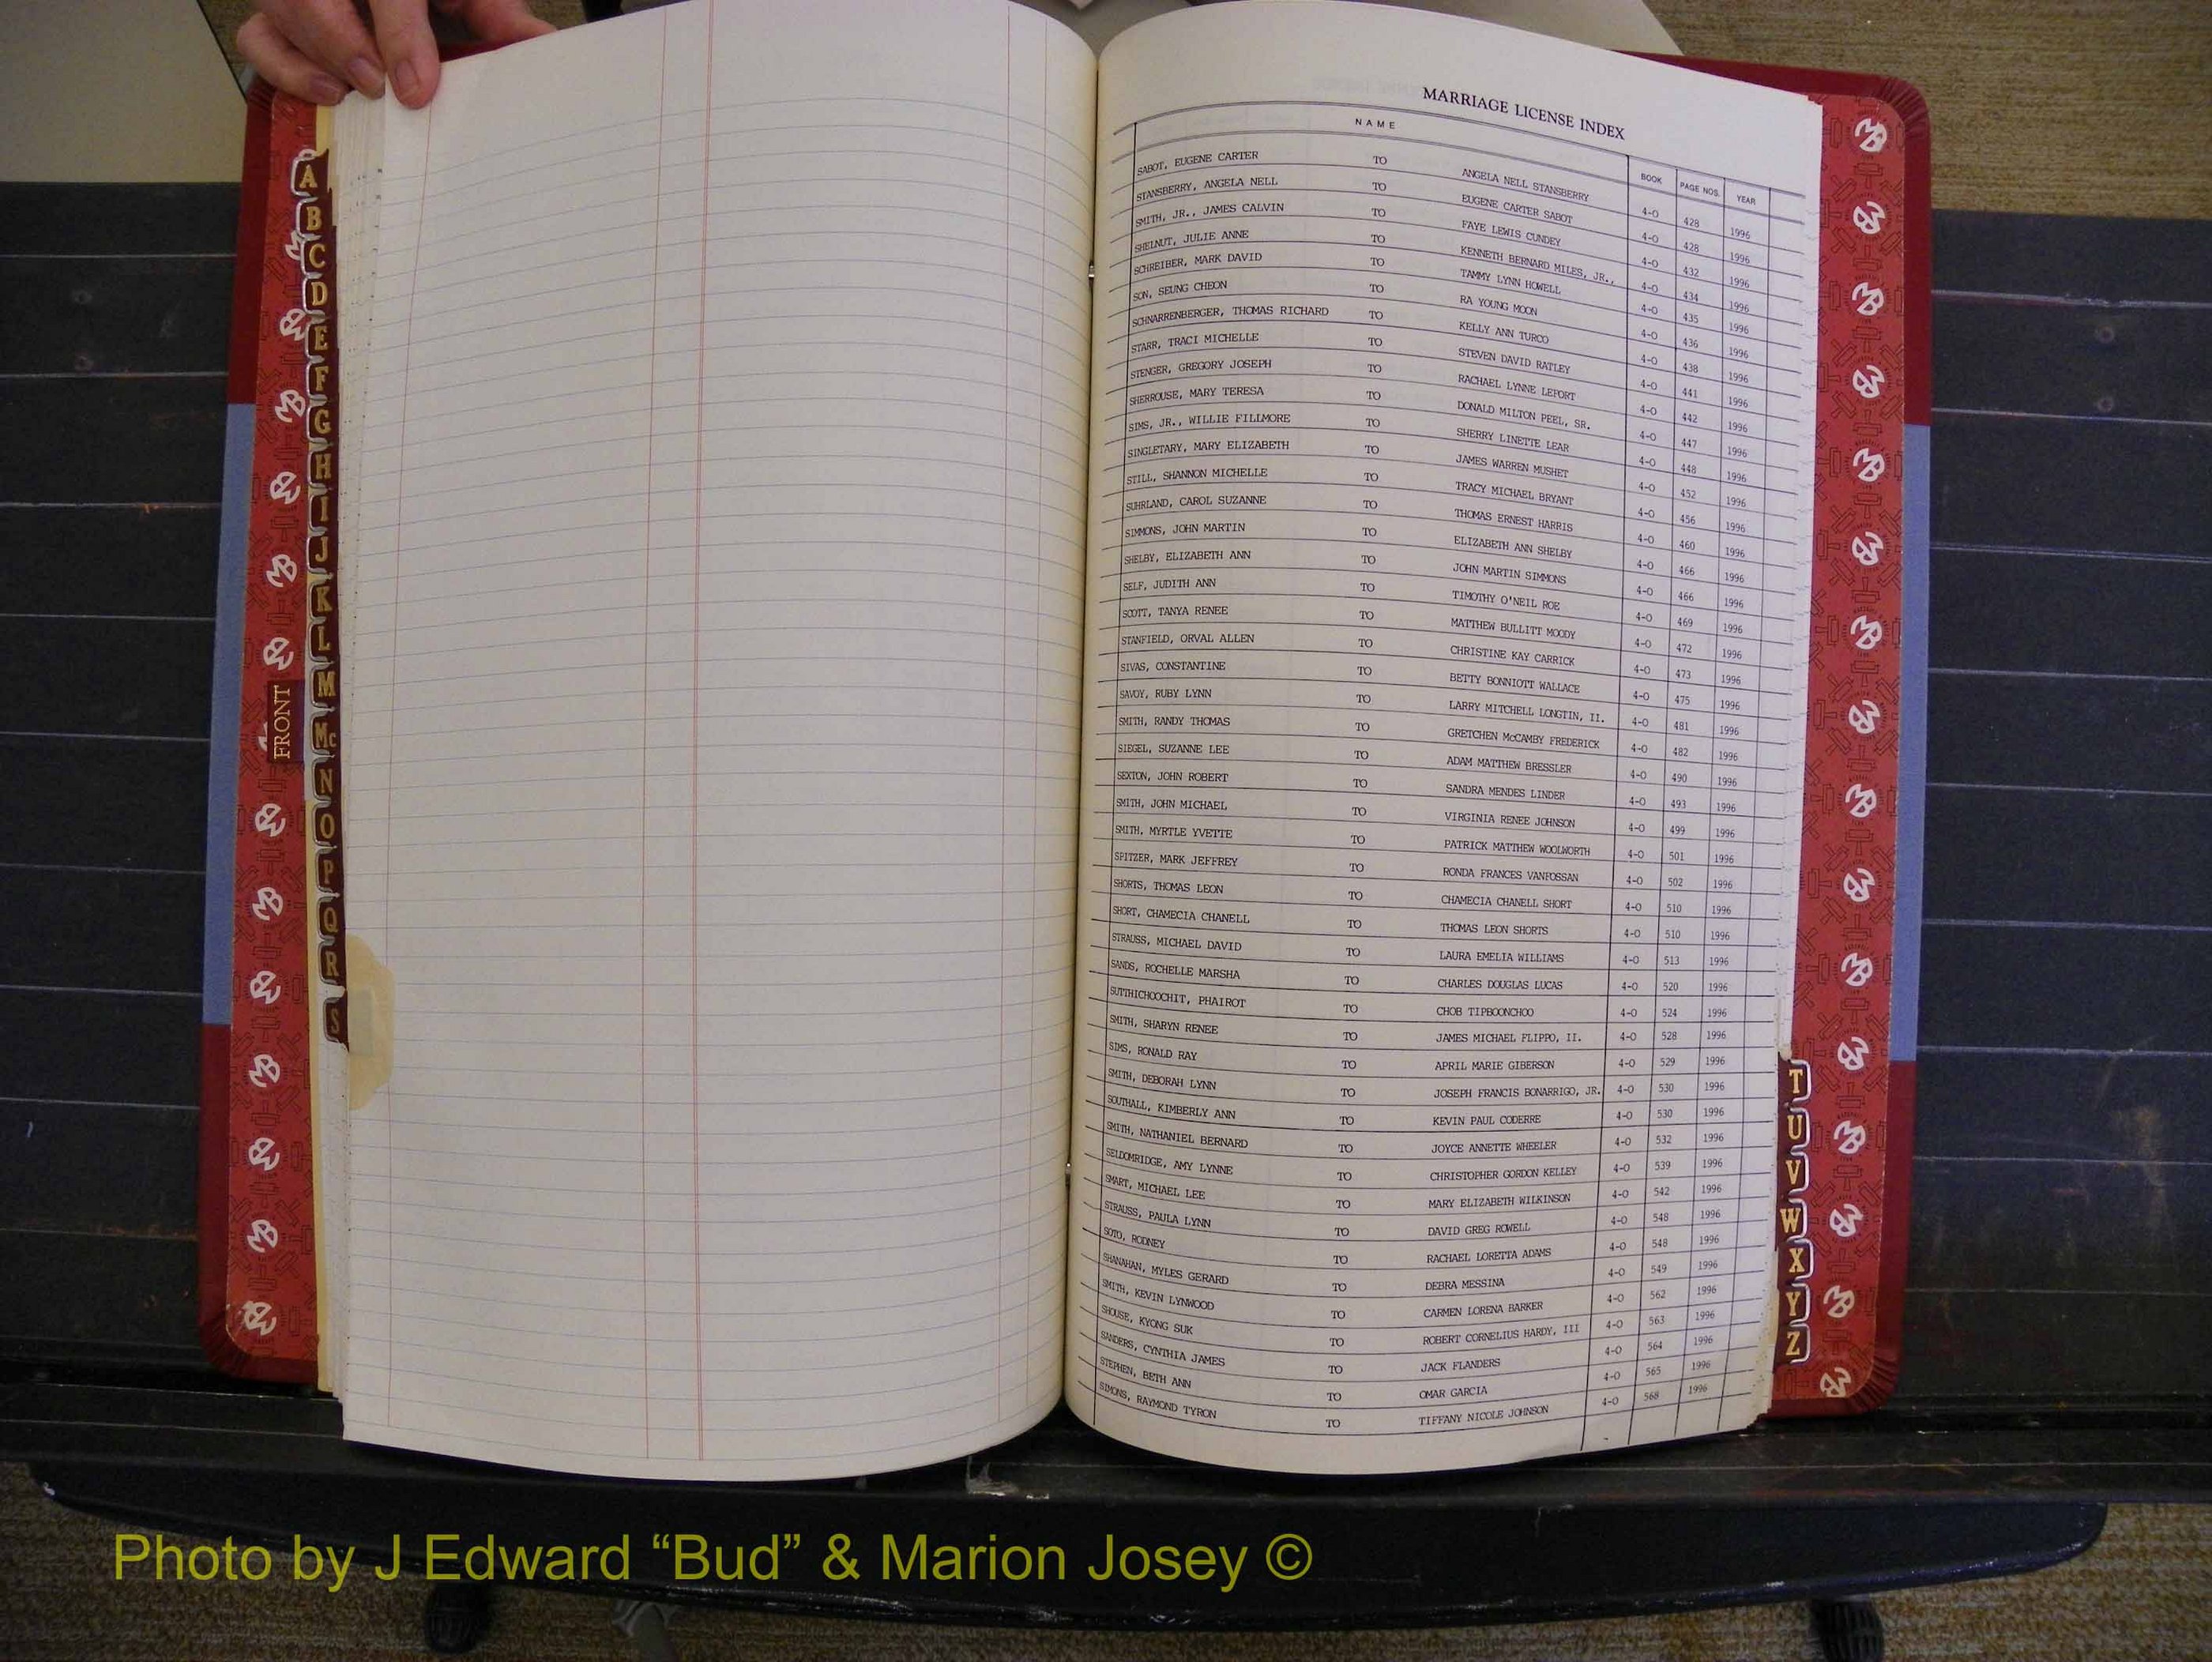 MARRIAGE LICENSE INDEX
NAME BOOK PAGE NOS. YEAR
SABOT, EUGENE CARTER TO ANGELA NELL STANSBERRY 4-O 428 1996
STANSBERRY, ANGELA NELL TO EUGENE CARTER SABOT 4-O 428 1996
SMITH, JR., JAMES CALVIN TO FAYE LEWIS CUNDEY 4-O 432 1996
SHELNUT, JULIE ANNE TO KENNETH BERNARD MILES, JR., 4-O 434 1996
SCHREIBER, MARK DAVID TO TAMMY LYNN HOWELL 4-O 435 1996
SON, SEUNG CHEON TO RA YOUNG MOON 4-O 436 1996
SCHNARRENBERGER, THOMAS RICHARD TO KELLY ANN TURCO 4-O 438 1996
STARR, TRACI MICHELLE TO STEVEN DAVID RATLEY 4-O 441 1996
STENGER, GREGORY JOSEPH TO RACHAEL LYNNE LEFORT 4-O 442 1996
SHERROUSE, MARY TERESA TO DONALD MILTON PEEL, SR. 4-O 447 1996
SIMS, JR., WILLIE FILLMORE TO SHERRY LINETTE LEAR 4-O 448 1996
SINGLETARY, MARY ELIZABETH TO JAMES WARREN MUSHET 4-O 452 1996
STILL, SHANNON MICHELLE TO TRACY MICHAEL BRYANT 4-O 456 1996
SUHRLAND, CAROL SUZANNE TO THOMAS ERNEST HARRIS 4-O 460 1996
SIMMONS, JOHN MARTIN TO ELIZABETH ANN SHELBY 4-O 466 1996
SHELBY, ELIZABETH ANN TO JOHN MARTIN SIMMONS 4-O 466 1996
SELF, JUDITH ANN TO TIMOTHY O'NEIL ROE 4-O 469 1996
SCOTT, TANYA RENEE TO MATTHEW BULLITT MOODY 4-O 472 1996
STANFIELD, ORVAL ALLEN TO CHRISTINE KAY CARRICK 4-O 473 1996
SIVAS, CONSTANTINE TO BETTY BONNIOTT WALLACE 4-O 475 1996
SAVOY, RUBY LYNN TO LARRY MITCHELL LONGTIN, II. 4-O 481 1996
SMITH, RANDY THOMAS TO GRETCHEN McCAMBY FREDERICK 4-O 482 1996
SIEGEL, SUZANNE LEE TO ADAM MATTHEW BRESSLER 4-O 490 1996
SEXTON, JOHN ROBERT TO SANDRA MENDES LINDER 4-O 493 1996
SMITH, JOHN MICHAEL TO VIRGINIA RENEE JOHNSON 4-O 499 1996
SMITH, MYRTLE YVETTE TO PATRICK MATTHEW WOOLWORTH 4-O 501 1996
SPITZER, MARK JEFFREY TO RONDA FRANCES VANFOSSAN 4-O 502 1996
SHORTS, THOMAS LEON TO CHAMECIA CHANELL SHORT 4-O 510 1996
SHORT, CHAMECIA CHANELL TO THOMAS LEON SHORTS 4-O 510 1996
STRAUSS, MICHAEL DAVID TO LAURA EMELIA WILLIAMS 4-O 513 1996
SANDS, ROCHELLE MARSHA TO CHARLES DOUGLAS LUCAS 4-O 520 1996
SUTTHICHOOCHIT, PHAIROT TO CHOB TIPBOONCHOO 4-O 524 1996
SMITH, SHARYN RENEE TO JAMES MICHAEL FLIPPO, II. 4-O 528 1996
SIMS, RONALD RAY TO APRIL MARIE GIBERSON 4-O 529 1996
SMITH, DEBORAH LYNN TO JOSEPH FRANCIS BONARRIGO, JR. 4-O 530 1996
SOUTHALL, KIMBERLY ANN TO KEVIN PAUL CODERRE 4-O 530 1996
SMITH, NATHANIEL BERNARD TO JOYCE ANNETTE WHEELER 4-O 532 1996
SELDOMRIDGE, AMY LYNNE TO CHRISTOPHER GORDON KELLEY 4-O 539 1996
SMART, MICHAEL LEE TO MARY ELIZABETH WILKINSON 4-O 542 1996
STRAUSS, PAULA LYNN TO DAVID GREG ROWELL 4-O 548 1996
SOTO, RODNEY TO RACHAEL LORETTA ADAMS 4-O 548 1996
SHANAHAN, MYLES GERARD TO DEBRA MESSINA 4-O 549 1996
SMITH, KEVIN LYNWOOD TO CARMEN LORENA BARKER 4-O 562 1996
SHOUSE, KYONG SUK TO ROBERT CORNELIUS HARDY, III 4-O 563 1996
SANDERS, CYNTHIA JAMES TO JACK FLANDERS 4-O 564 1996
STEPHEN, BETH ANN TO OMAR GARCIA 4-O 565 1996
SIMONS, RAYMOND TYRON TO TIFFANY NICOLE JOHNSON 4-O 568 1996
A
B
C
D
E
F
G
H
I
J
K
L
M
Mc
N
O
P
Q
R
S
FRONT
T
U
V
W
X
Y
Z
Photo by J Edward “Bud” & Marion Josey ©